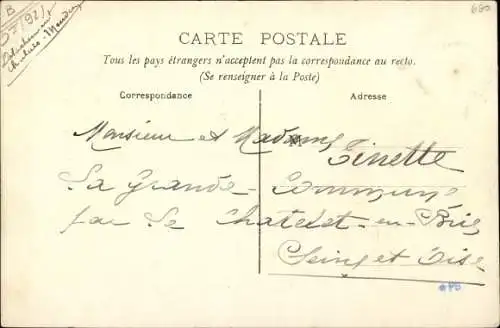 B
CARTE POSTALE
Tous les pays étrangers n'acceptent pas la correspondance au recto.
(Se renseigner à la Poste)
Correspondance
Adresse
Monsieur et Madame
Tinette
La Grande Commune
par Le Chatelet-en-Brie
Seine et Oise